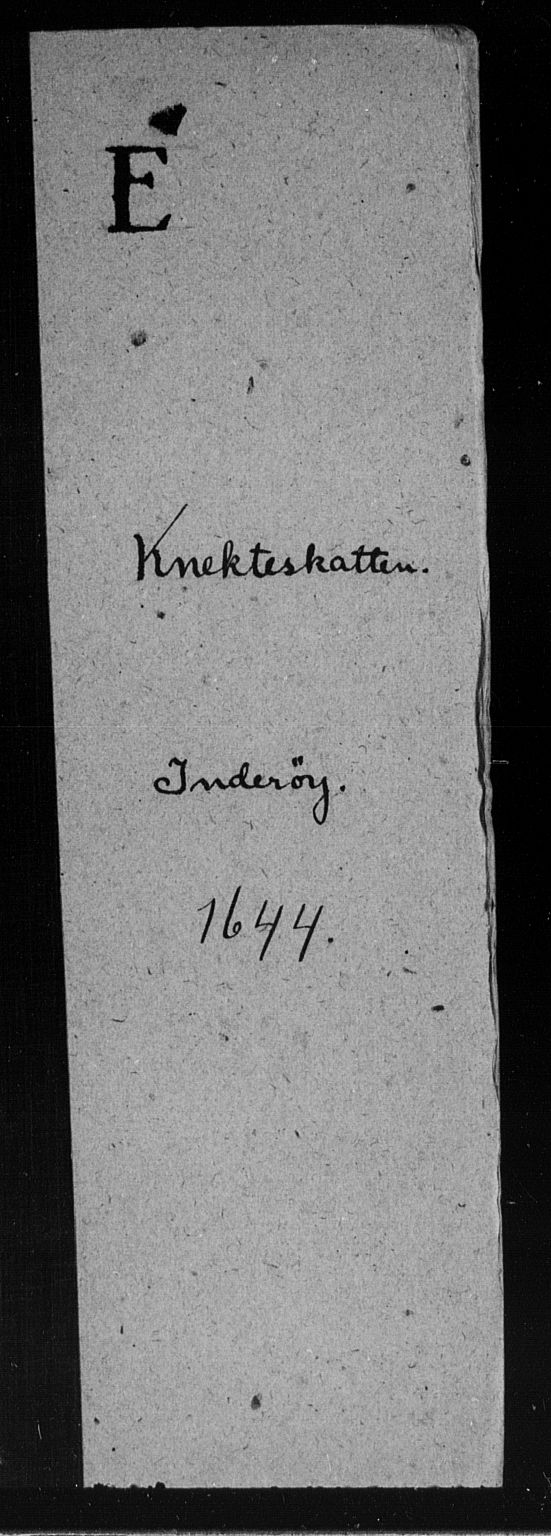 E
Knekteskatten.
Inderöy.
1644.